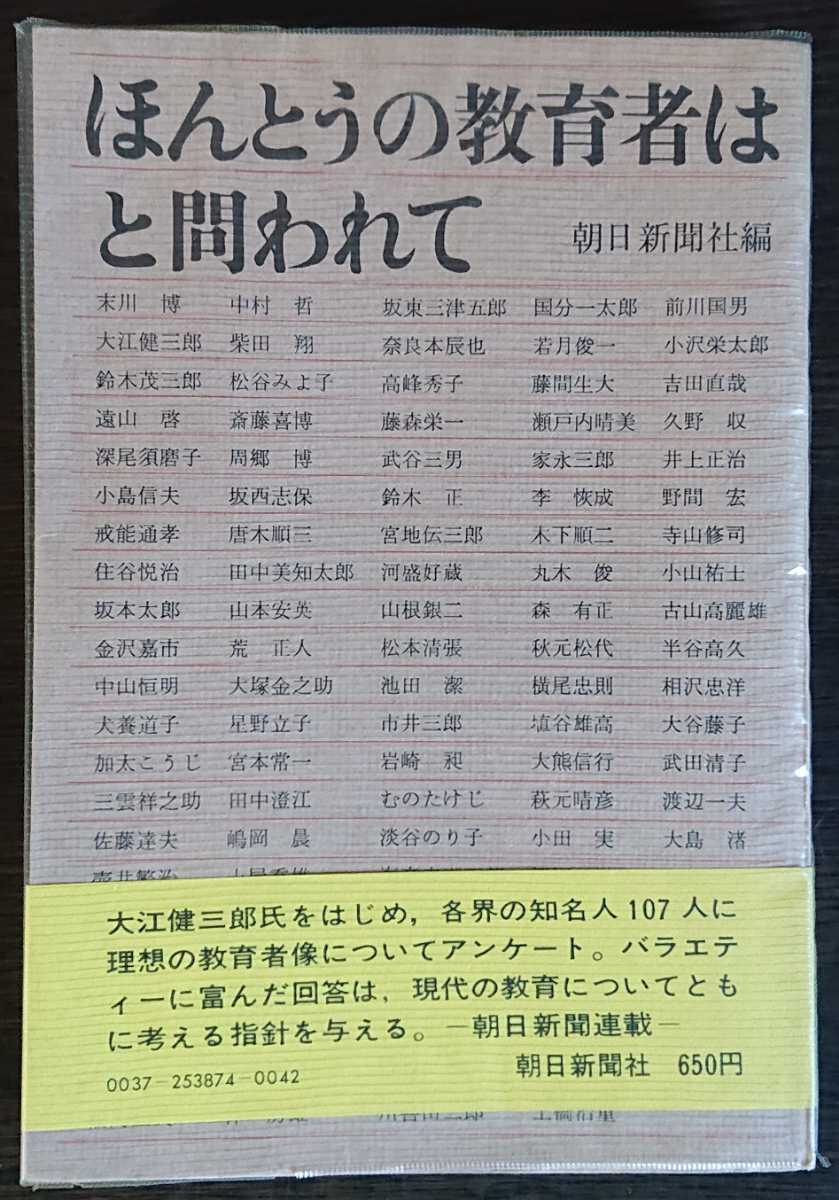 ほんとうの教育者は
と問われて
朝日新聞社編
末川 博 中村 哲 坂東三津五郎 国分一太郎 前川国男
大江健三郎 柴田 翔 奈良本辰也 若月俊一 小沢栄太郎
鈴木茂三郎 松谷みよ子 高峰秀子 藤間生大 吉田直哉
遠山 啓 斎藤喜博 藤森栄一 瀬戸内晴美 久野 収
深尾須磨子 周郷 博 武谷三男 家永三郎 井上正治
小島信夫 坂西志保 鈴木 正 李 恢成 野間 宏
戒能通孝 唐木順三 宮地伝三郎 木下順二 寺山修司
住谷悦治 田中美知太郎 河盛好蔵 丸木 俊 小山祐士
坂本太郎 山本安英 山根銀二 森 有正 古山高麗雄
金沢嘉市 荒 正人 松本清張 秋元松代 半谷高久
中山恒明 大塚金之助 池田 潔 横尾忠則 相沢忠洋
犬養道子 星野立子 市井三郎 埴谷雄高 大谷藤子
加太こうじ 宮本常一 岩崎 昶 大熊信行 武田清子
三雲祥之助 田中澄江 むのたけじ 萩元晴彦 渡辺一夫
佐藤達夫 嶋岡 晨 淡谷のり子 小田 実 大島 渚
大江健三郎氏をはじめ，各界の知名人107人に
理想の教育者像についてアンケート。バラエテ
ィーに富んだ回答は，現代の教育についてとも
に考える指針を与える。―朝日新聞連載―
朝日新聞社 650円
0037-253874-0042